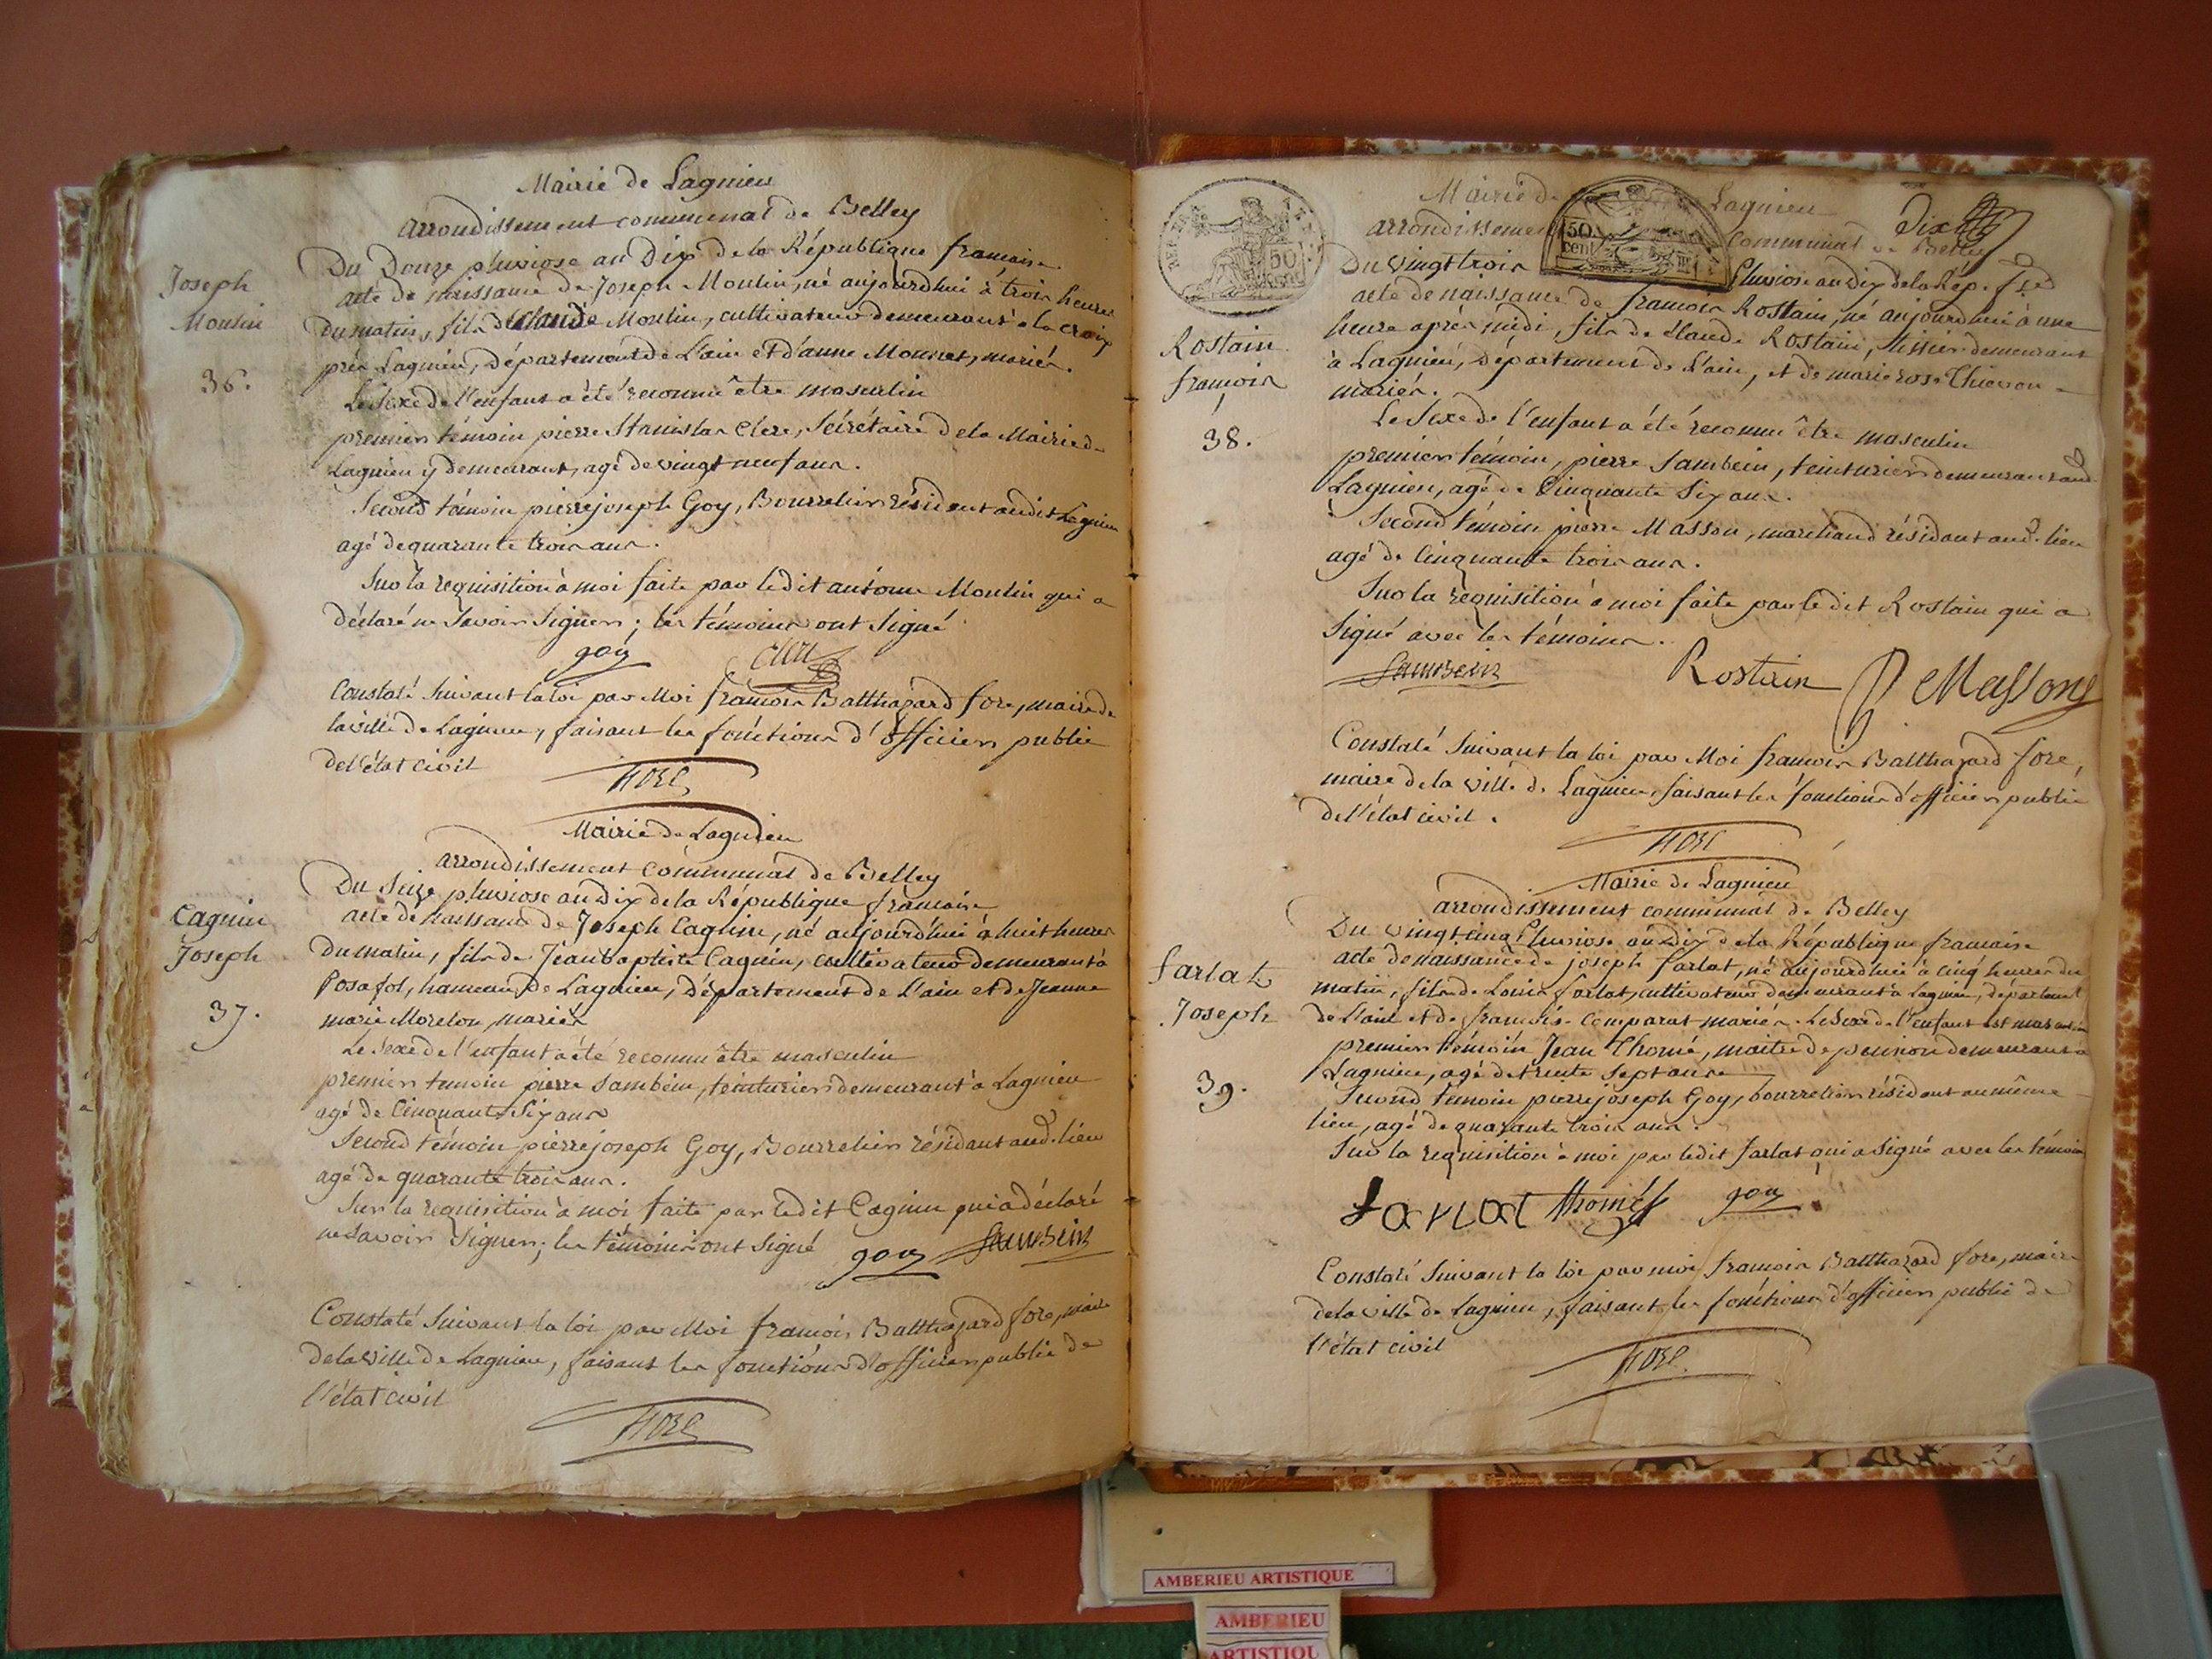 Mairie de Lagnieu
arrondissement communal de Belley
Joseph
Moulin
36.
Du Douze pluviose an Dix de la République francaise
acte de naissance de Joseph Moulin, né aujourdhui à trois heures
du matin, fils de Claude Moulin, cultivateur demeurant à la croix
près Lagnieu, département de L'ain et d'anne Monnet, mariés.
Le Sexe de l'enfant a été reconnu être masculin
premier témoin pierre Stanislas Clerc, Sécrétaire de la Mairie de
Lagnieu y demeurant, agé de vingt neuf ans.
Second témoin pierre joseph Goy, Bourrelier résidant audit Lagnieu
agé de quarante trois ans.
Sur la requisition à moi faite par ledit antoine Moulin qui a
déclaré ne Savoir Signer; les témoins ont Signé
goy Clerc
Constaté Suivant la loi par Moi francois Balthazard fore, maire de
la ville de Lagnieu, faisant les fonctions d'officier public
de l'état civil
fore
Mairie de Lagnieu
arrondissement communal de Belley
Cagnin
Joseph
37.
Du Seize pluviose an Dix de la République francaise
acte de naissance de Joseph Cagnin, né aujourd'hui à huit heures
du matin, fils de Jean baptiste Cagnin, cultivateur demeurant à
Posafol, hameau de Lagnieu, département de L'ain et de Jeanne
marie Morelon, mariés
Le Sexe de l'enfant a été reconnu être masculin
premier temoin pierre Sambein, teinturier demeurant à Lagnieu
agé de Cinquante Six ans
Second témoin pierre joseph Goy, Bourrelier résidant aud. lieu
agé de quarante trois ans.
Sur la requisition à moi faite par ledit Cagnin qui a déclaré
ne Savoir Signer; les témoins ont Signé goy Sambein
Constaté Suivant la loi par Moi francois Balthazard fore, maire
de la ville de Lagnieu, faisant les fonctions d'officier public de
l'état civil
fore
50
cent
Mairie de Lagnieu Dix
arrondissement communal de Belley
Rostain
francois
38.
Du vingt trois Pluviose an Dix de la Rép. fse
acte de naissance de francois Rostain, né aujourdhui à une
heure après midi, fils de Claude Rostain, demeurant
à Lagnieu, département de L'ain, et de marie rose Thievon
mariés.
Le Sexe de l'enfant a été reconnu être masculin
premier témoin, pierre Sambein, teinturier demeurant aud.
Lagnieu, agé de Cinquante Six ans.
Second témoin pierre Masson, marchand résidant aud. lieu
agé de Cinquante trois ans.
Sur la requisition à moi faite par ledit Rostain qui a
Signé avec les témoins.
Sambein Rostain P Massons
Constaté Suivant la loi par Moi francois Balthazard fore,
maire de la ville de Lagnieu, faisant les fonctions d'officier public
de l'état civil.
fore
Mairie de Lagnieu
arrondissement communal de Belley
farlat
Joseph
39.
Du vingt cinq Pluviose an dix de la République francaise
acte de naissance de joseph farlat, né aujourdhui à cinq heures du
matin, fils de Louis farlat, cultivateur demeurant à Lagnieu, départemt
de L'ain et de francoise Comparat mariés. Le Sexe de l'enfant est masculin
premier témoin Jean Thomé, maitre de pension demeurant à
Lagnieu, agé de trente Sept ans
Second témoin pierre joseph Goy, bourrelier résidant au même
lieu, agé de quarante trois ans.
Sur la requisition à moi par ledit farlat qui a Signé avec les témoins
farlat thomé goy
Constaté Suivant la loi par moi francois Balthazard fore, maire
de la ville de Lagnieu, faisant les fonctions d'officier public de
l'état civil
fore.
AMBERIEU ARTISTIQUE
AMBERIEU
ARTISTIQU